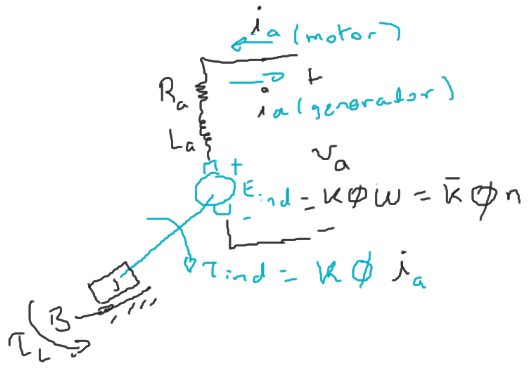 ia (motor)
+
Ra
ia (generador)
La
va
+
Eind = KØω = K̄Øn
-
-
τind = KØ ia
J
B
τL